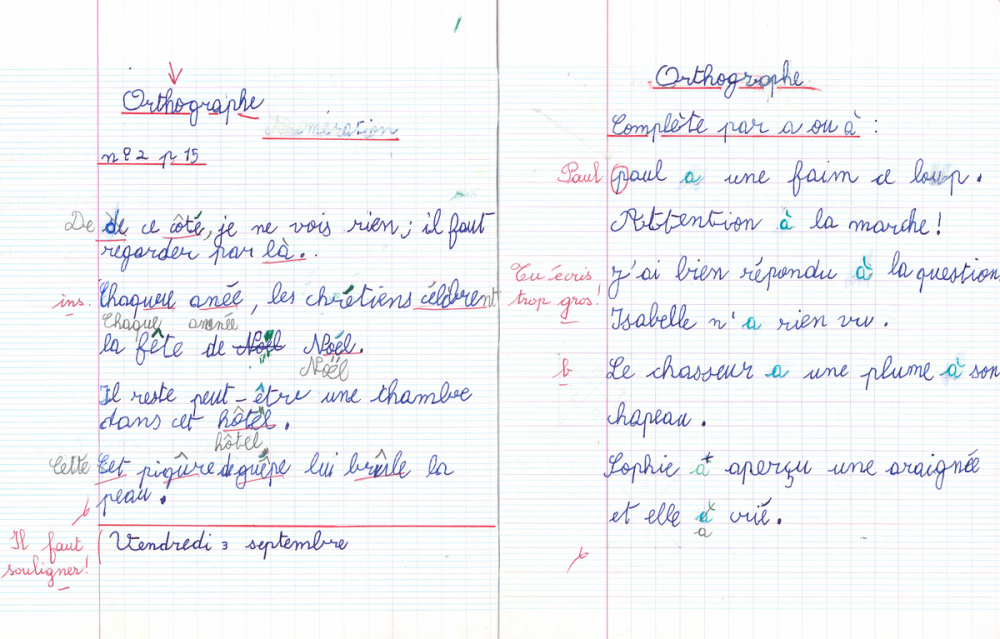 Orthographe
Numération
n° 2 p 15
De de ce côté, je ne vois rien ; il faut
regarder par là.
ins. Chaqueu anée, les chrétiens célèbrent
Chaque année
la fête de Noël Noél.
Noël
Il reste peut-être une chambre
dans cet hôtel.
hôtel
Cette Cet piqûre de guêpe lui brûle la
peau.
b
Il faut
souligner!
Vendredi 3 septembre
Orthographe
Complète par a ou à :
Paul paul a une faim de loup.
Attention à la marche!
Tu écris
trop gros!
J'ai bien répondu à la question
Isabelle n'a rien vu.
b Le chasseur a une plume à son
chapeau.
Sophie a aperçu une araignée
et elle à crié.
a
b